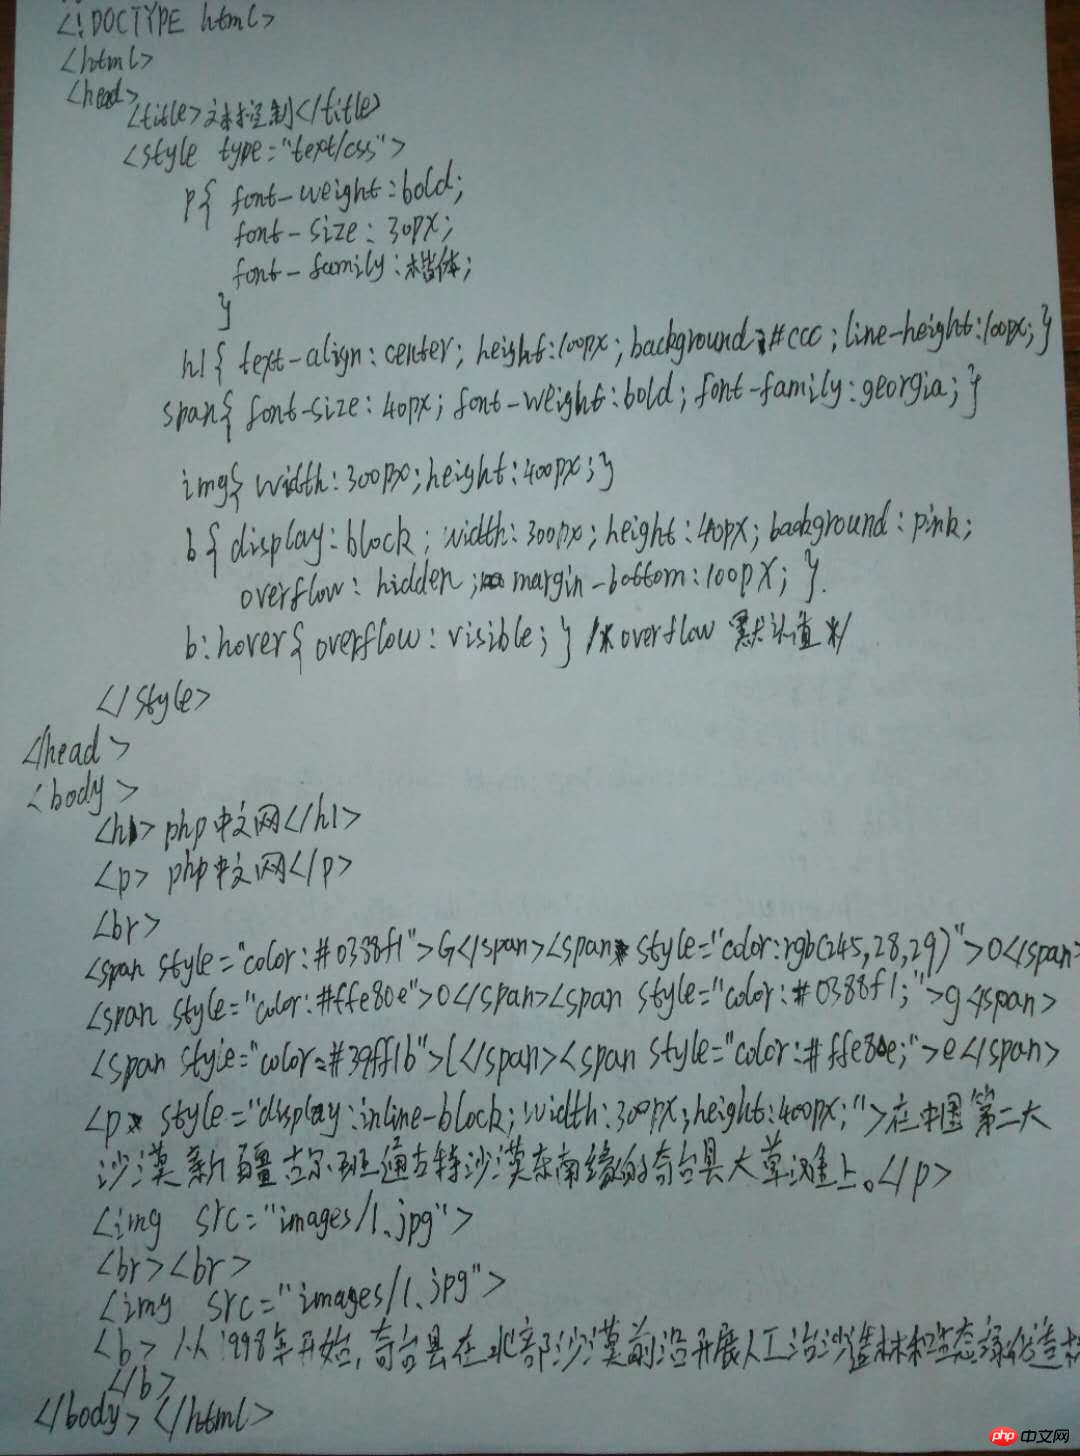 <!DOCTYPE html>
<html>
<head>
<title>文本控制</title>
<style type="text/css">
p{ font-weight:bold;
font-size: 30px;
font-family:楷体;
}
h1{ text-align: center; height:100px; background:#ccc; line-height:100px; }
span{ font-size: 40px; font-weight:bold; font-family:georgia; }
img{ width:300px; height:400px; }
b{ display:block; width:300px; height:40px; background:pink;
overflow: hidden; margin-bottom:100px; }
b:hover{ overflow: visible; } /*overflow 默认值*/
</style>
</head>
<body>
<h1> php中文网</h1>
<p> php中文网</p>
<br>
<span style="color:#0388f1">G</span><span style="color:rgb(245,28,29)">O</span>
<span style="color:#ffe80e">O</span><span style="color:#0388f1;">g<span>
<span style="color=#39ff1b">l</span><span style="color:#ffe80e;">e</span>
<p style="display:inline-block; width:300px; height:400px;">在中国第二大
沙漠新疆古尔班通古特沙漠东南缘的奇台县大草滩上。</p>
<img src="images/1.jpg">
<br><br>
<img src="images/1.jpg">
<b> 从1998年开始,奇台县在北部沙漠前沿开展人工治沙造林和生态绿化造林
</b>
</body></html>
php 中文网